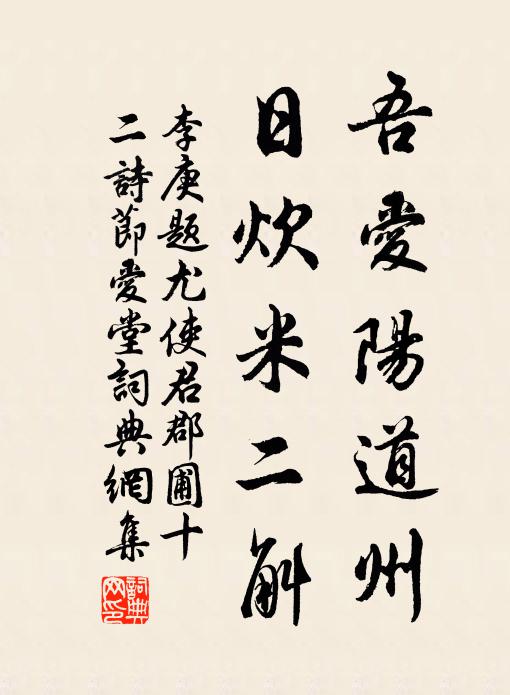 吾愛陽道州
日炊米二斛
李庚題尤使君郡圃十
二詩節愛堂詞典網集
詞典
网印